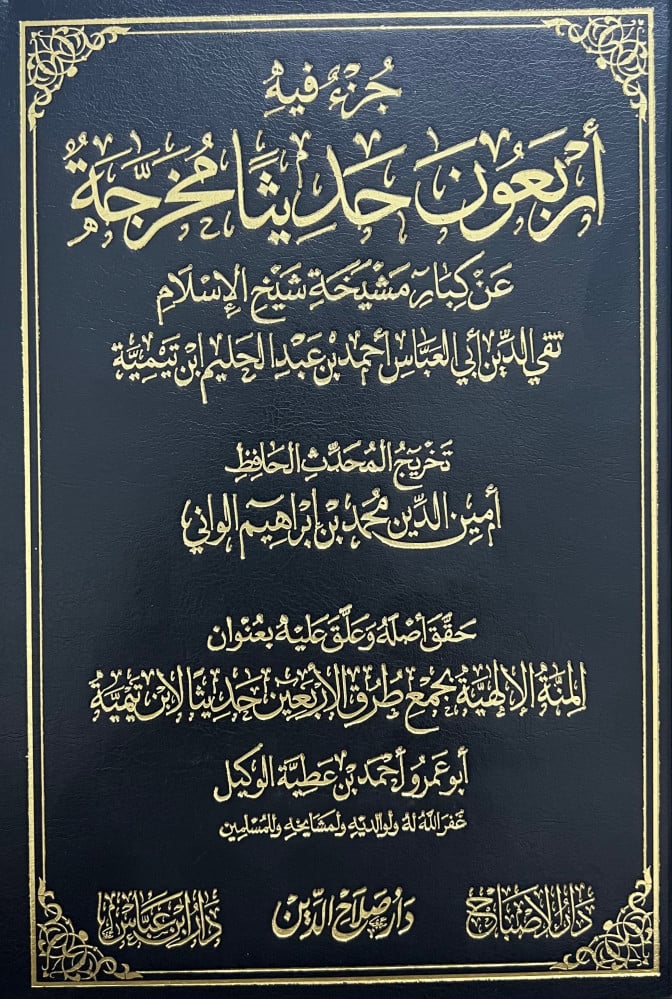 جُزْءٌ فِيهِ
أَرْبَعُونَ حَدِيثًا مُخَرَّجَةٌ
عَنْ كِبَارِ مَشْيَخَةِ شَيْخِ الإِسْلَامِ
تَقِي الدِّينِ أَبِي العَبَّاسِ أَحْمَد بْنِ عَبْدِ الحَلِيمِ ابْنِ تَيْمِيَّة
تَخْرِيجُ المُحَدِّثِ الحَافِظِ
أَمِينِ الدِّينِ مُحَمَّد بْنِ إِبْرَاهِيمَ الوَانِي
حَقَّقَ أَصْلَهُ وَعَلَّقَ عَلَيْهِ بعُنْوَان
المِنَّةُ الإِلَهِيَّةُ بِجَمْعِ طُرُقِ الأَرْبَعِينَ حَدِيثًا لِابْنِ تَيْمِيَّةَ
أَبُو عَمْرٍو أَحْمَد بْنُ عَطِيَّة الوَكِيل
غَفَرَ اللهُ لَهُ وَلِوَالِدَيْهِ وَلِمَشَايِخِهِ وَلِلْمُسْلِمِين
دَارُ الإِصْبَاح دَارُ صَلَاحِ الدِّين دَارُ ابْنِ عَبَّاس